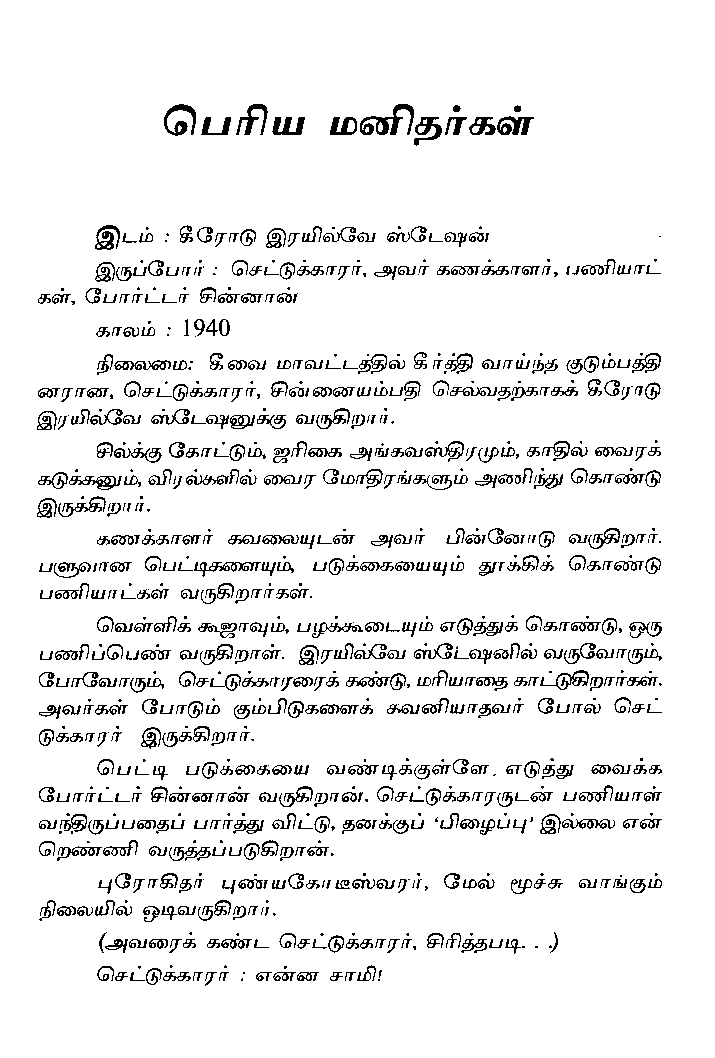 பெரிய மனிதர்கள்
இடம் : கீரோடு இரயில்வே ஸ்டேஷன்
இருப்போர் : செட்டுக்காரர், அவர் கணக்காளர், பணியாட்
கள், போர்ட்டர் சின்னான்
காலம் : 1940
நிலைமை: கீவை மாவட்டத்தில் கீர்த்தி வாய்ந்த குடும்பத்தி
னரான, செட்டுக்காரர், சின்னையம்பதி செல்வதற்காகக் கீரோடு
இரயில்வே ஸ்டேஷனுக்கு வருகிறார்.
சில்க்கு கோட்டும், ஜரிகை அங்கவஸ்திரமும், காதில் வைரக்
கடுக்கனும், விரல்களில் வைர மோதிரங்களும் அணிந்து கொண்டு
இருக்கிறார்.
கணக்காளர் கவலையுடன் அவர் பின்னோடு வருகிறார்.
பளுவான பெட்டிகளையும், படுக்கையையும் தூக்கிக் கொண்டு
பணியாட்கள் வருகிறார்கள்.
வெள்ளிக் கூஜாவும், பழக்கூடையும் எடுத்துக் கொண்டு, ஒரு
பணிப்பெண் வருகிறாள். இரயில்வே ஸ்டேஷனில் வருவோரும்,
போவோரும், செட்டுக்காரரைக் கண்டு, மரியாதை காட்டுகிறார்கள்.
அவர்கள் போடும் கும்பிடுகளைக் கவனியாதவர் போல் செட்
டுக்காரர் இருக்கிறார்.
பெட்டி படுக்கையை வண்டிக்குள்ளே எடுத்து வைக்க
போர்ட்டர் சின்னான் வருகிறான். செட்டுக்காரருடன் பணியாள்
வந்திருப்பதைப் பார்த்து விட்டு, தனக்குப் ‘பிழைப்பு’ இல்லை என்
றெண்ணி வருத்தப்படுகிறான்.
புரோகிதர் புண்யகோடீஸ்வரர், மேல் மூச்சு வாங்கும்
நிலையில் ஓடிவருகிறார்.
(அவரைக் கண்ட செட்டுக்காரர், சிரித்தபடி. . .)
செட்டுக்காரர் : என்ன சாமி!